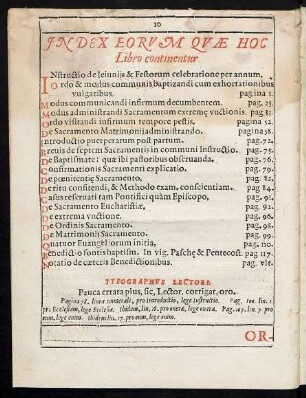 10
INDEX EORVM QVÆ HOC
Libro continentur
INstructio de Ieiunijs & Festorum celebratione per annum,
Ordo & modus communis baptizandi cum exhortationibus
vulgaribus. pagina 1.
Modus communicandi infirmum decumbentem. pag. 25.
Modus administrandi Sacramentum extremę vnctionis. pag 31.
Ordo visitandi infirmum tempore pestis. pagina 52.
De Sacramento Matrimonij administrando. pagina 58.
Introductio puerperarum post partum. pag. 72.
Breuis de septem Sacramentis in communi Instructio. pag. 75.
De Baptismate: quæ ibi pastoribus obseruanda. pag. 76.
Confirmationis Sacramenti explicatio. pag. 79.
De pœnitentię Sacramento. pag. 82.
De ritu confitendi, & Methodo exam. conscientiam. pag 84.
Casus reseruati tam Pontifici quàm Episcopo, pag. 91.
De Sacramento Eucharistiæ, pag. 92.
De extrema vnctione. pag. 96.
De Ordinis Sacramento. pag. 98.
De Matrimonij Sacramento. pag. 99.
Quatuor Euangeliorum initia, pag. 110.
Benedictio fontis baptism. In vig. Paschę & Pentecost. pag. 117.
Notatio de cæteris Benedictionibus. pag. vlt.
TYPOGRAPHVS LECTORI.
Pauca errata plus, sic, Lector, corrigat, oro.
Pagina 78. linea numerali, pro Introductio, lege Instructio. Pag. 100. lin. 1
pro Ecclesiam, lege Ecclesiæ. ibidem, lin. 18. pro
eum, lege enim. ibidem lin. 17. pro eum, lege enim.
OR-